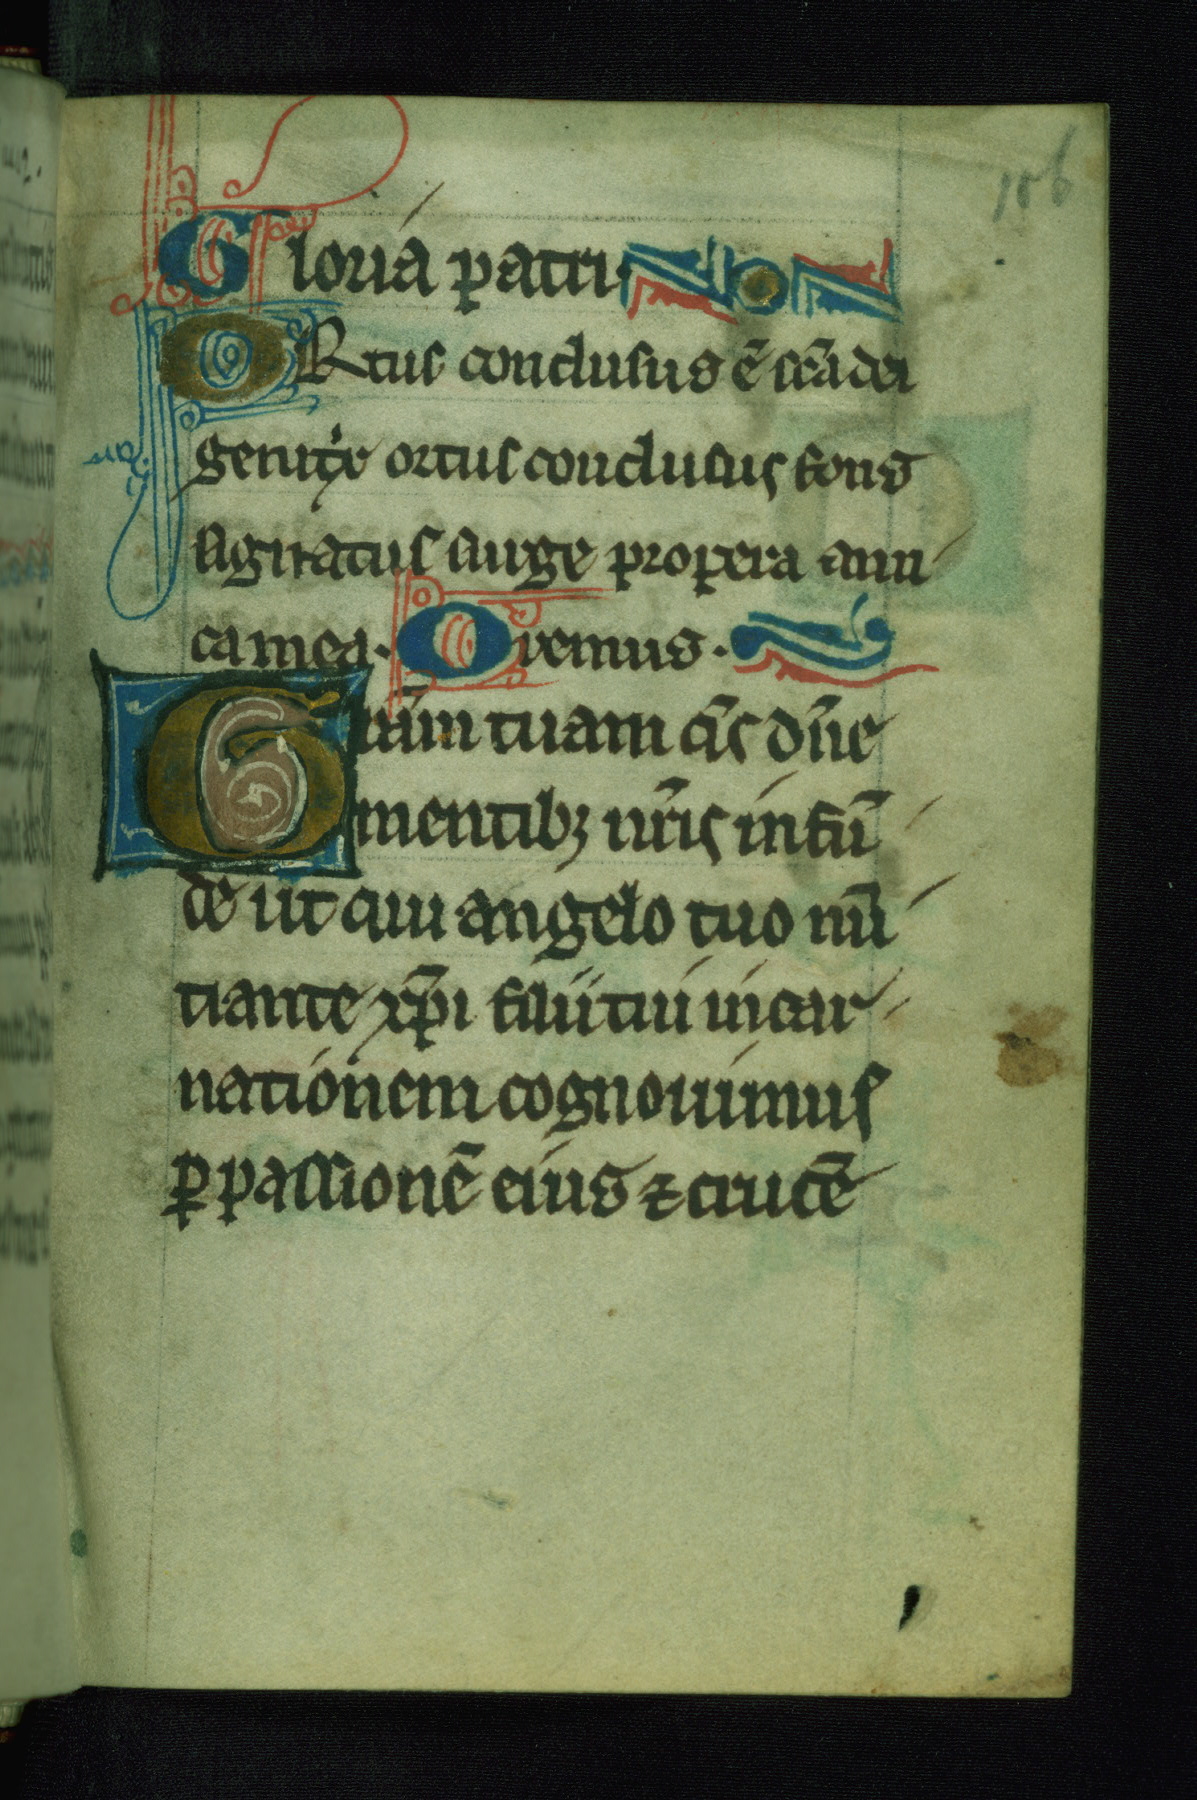 156
Gloria patri.
ORtus conclusus ē scā dei
genitͥx ortus conclusus fons
signatus surge propera ami
ca mea. Oremus.
Gr̄am tuam q̄s dn̄e
mentibꝫ nr̄is infū
de ut qui angelo tuo nū
tiante xp̄i filii tui incar
nationem cognouimus
ꝑ passionē eius ⁊ crucē